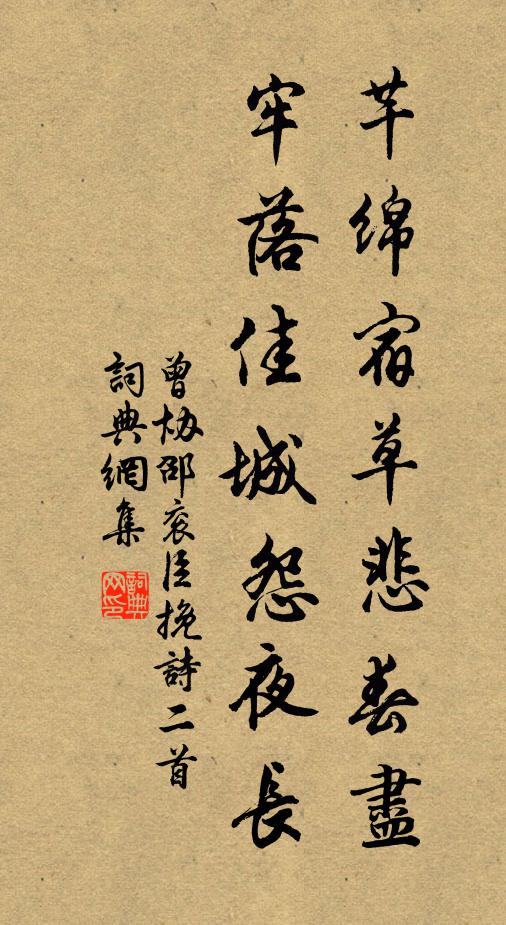 芊綿宿草悲春盡
牢落佳城怨夜長
曾協邵衮臣挽詩二首
詞典網集
詞典网印